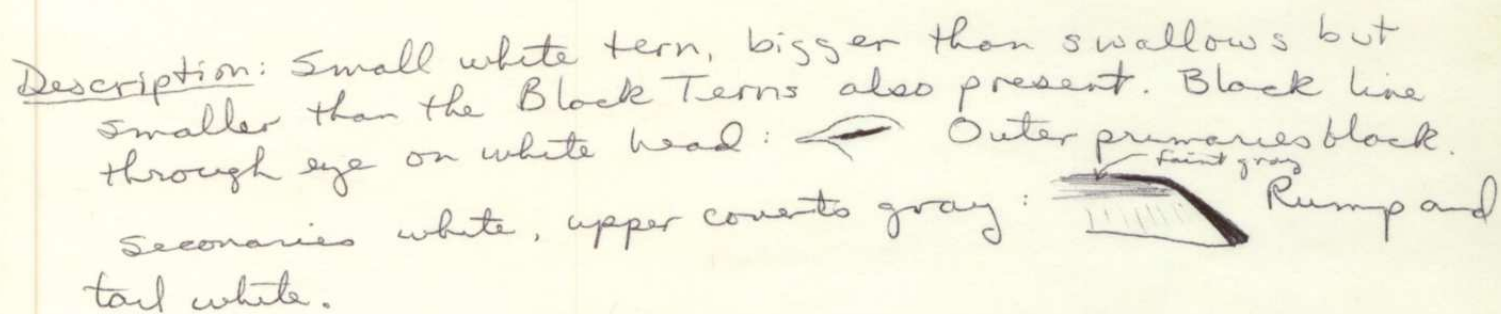 Description: Small white tern, bigger than swallows but
smaller than the Black Terns also present. Black line
through eye on white head: Outer primaries black.
faint gray
Seconaries white, upper coverts gray: Rump and
tail white.